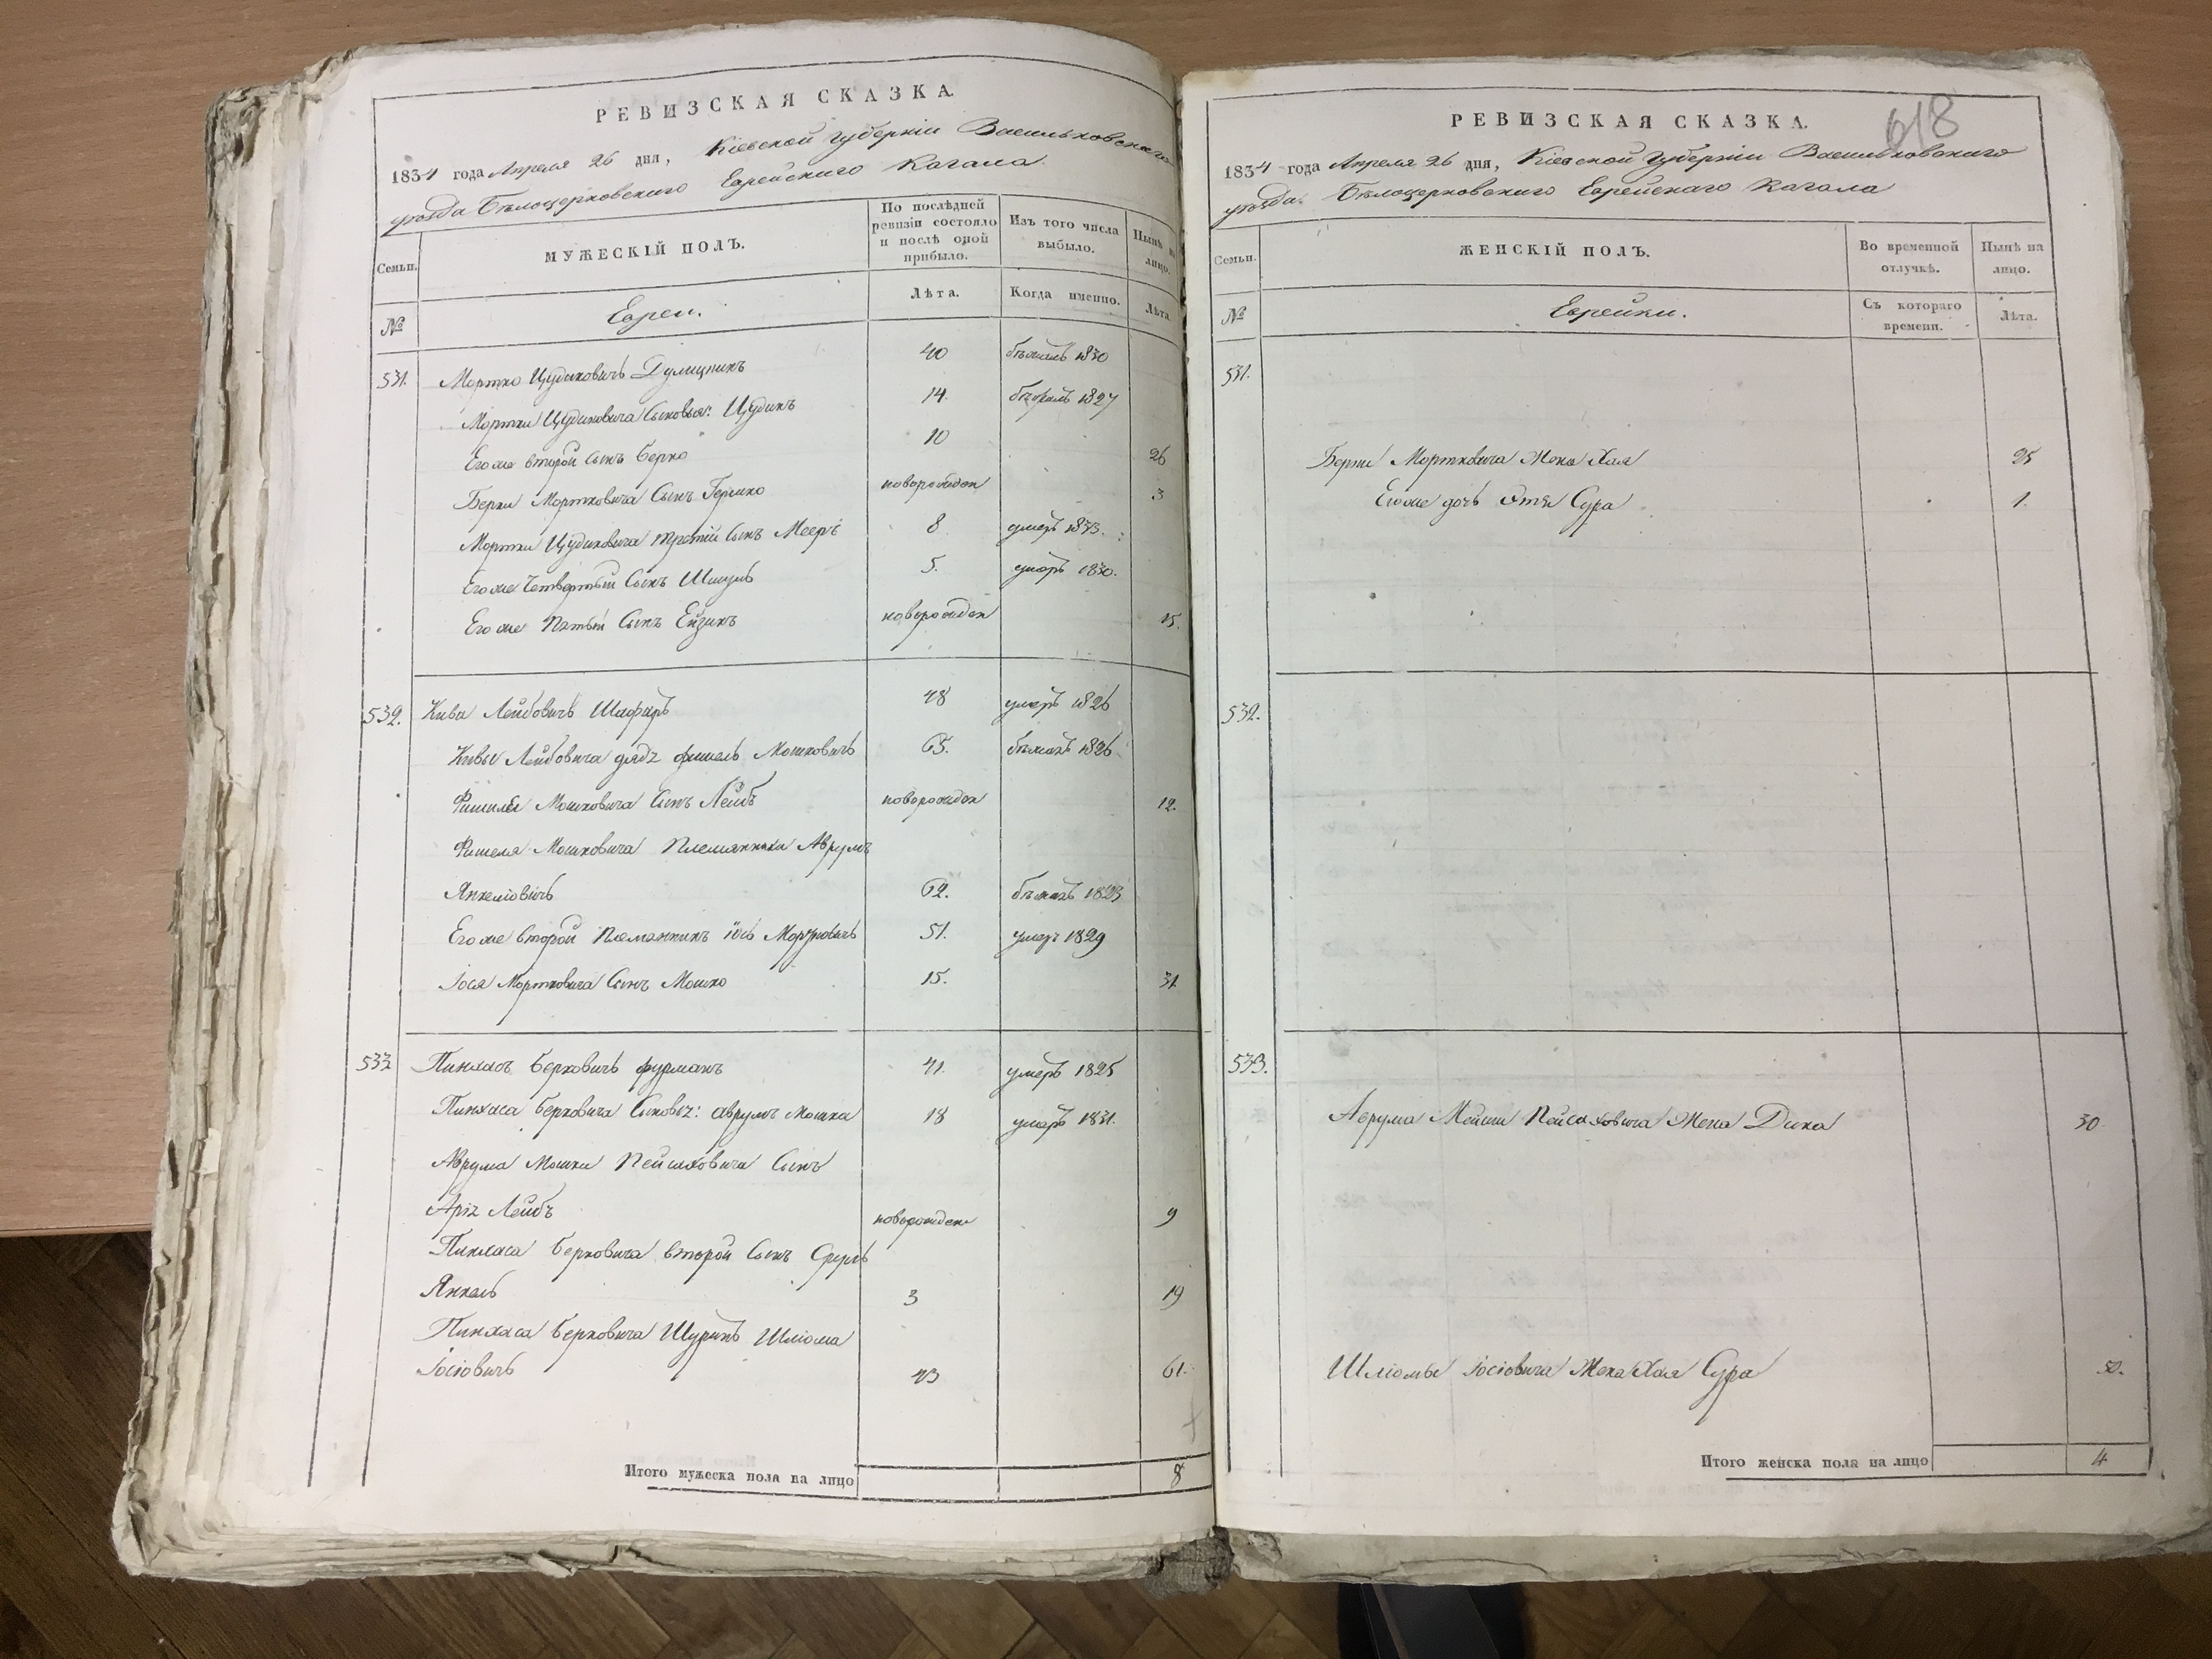 РЕВИЗСКАЯ СКАЗКА.
1834 года Апреля 26 дня, Кіевской Губерніи Васильковскаго
уѣзда Бѣлоцерковскаго Еврейскаго Кагала
Семьи.
МУЖЕСКІЙ ПОЛЪ.
По послѣдней ревизіи состояло и послѣ оной прибыло.
Изъ того числа выбыло.
Нынѣ на лицо.
№
Евреи.
Лѣта.
Когда именно.
Лѣта.
531. Мортко Цудиковичъ 40 бѣжалъ 1830
Мортки Цудиковича Сыновья: Цудикъ 14. 1827
Его же второй сынъ Берко 10 26
Берки Мортковича Сынъ Гершко новорожден 3
Мортки Цудиковича третій Сынъ Мееръ 8 умеръ 1833.
Его же Четвертый Сынъ Шмуль 5. умеръ 1830.
Его же Пятый Сынъ Ейзикъ новорожден 15.
532. Кива Лейбовичъ Шафиръ 48 умеръ 1826
Кивы Лейбовича дядя фишель Мошковичъ 65. бѣжалъ 1826
Фишеля Мошковича Сынъ Лейбъ новорожден 12.
Фишеля Мошковича Племянники Аврумъ
Янкеліовичъ 62. бѣжалъ 1823
Его же второй Племянникъ іось Мортковичъ 51. умеръ 1829
Іося Мортковича Сынъ Мошко 15. 31
533 Пинхасъ Берковичъ фурманъ 41. умеръ 1825
Пинхаса Берковича Сыновья: аврумъ Мошка 18 умеръ 1831.
Аврума Мошки Пейсаховича Сынъ
Арія Лейбъ новорожден 9
Пинхаса Берковича второй Сынъ Сруль
Янкель 3 19
Пинхаса Берковича Шуринъ Шліома
Іосіовичъ 43 61.
Итого мужеска пола на лицо 8
618
РЕВИЗСКАЯ СКАЗКА.
1834 года Апреля 26 дня, Кіевской Губерніи Васильковскаго
уѣзда Бѣлоцерковскаго Еврейскаго Кагала
Семьи.
ЖЕНСКІЙ ПОЛЪ.
Во временной отлучкѣ.
Нынѣ на лицо.
№
Еврейки.
Съ котораго времени.
Лѣта.
531.
Берки Мортковича Жена Хая 25
Его же дочь Сура 1.
532.
533.
Аврума Мошки Пейсаховича Жена Дика 30
Шліомы Іосіовича Жена Хая Сура 50.
Итого женска пола на лицо 4